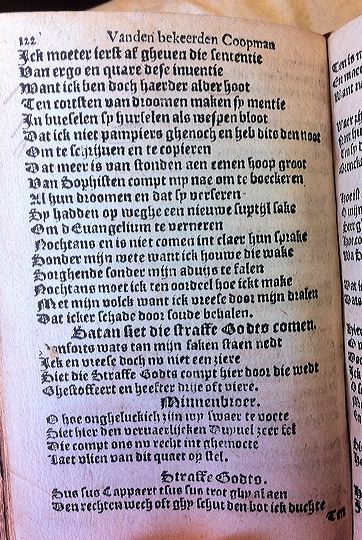 122 Vanden bekeerden Coopman
Ick moeter ierst af gheuen die sententie
Van ergo en quare dese inuentie
Want ick ben doch haerder alder hoot
Ten cortsten van droomen maken sy mentie
In bueselen sy hurselen als wespen bloot
Dat ick niet pampiers ghenoch en heb dits den noot
Om te schrijuen en te copieren
Dat meer is van stonden aen eenen hoop groot
Van Sophisten compt my nae om te boeckeren
Al hun droomen en dat sy verseren
Sy hadden op weghe een nieuwe suptijl sake
Om d Euangelium te verneren
Nochtans en is niet comen int claer hun sprake
Sonder mijn wete want ick houwe die wake
Sorghende sonder mijn aduijs te falen
Nochtans moet ick ten oordeel hoe ickt make
Met mijn volck want ick vreese door mijn dralen
Dat icker schade door soude behalen.
Satan siet die straffe Godts comen.
Confoorts wats tan mijn saken staen nedt
Ick en vreese doch nv niet een ziere
Siet die Straffe Godts compt hier door die wedt
Ghestoffeert en heefter drije oft viere.
Minnenbroer.
O hoe ongheluckich zijn wy swaer te voete
Siet hier den veruaerlijcken Duyuel zeer fel
Die compt ons nv recht int ghemoete
Laet vlien van dit quaet op stel.
Straffe Godts.
Sus sus Cappaert tsus sus trot ghy al aen
Den rechten wech oft ghy schut den bot ick duchte
Ten